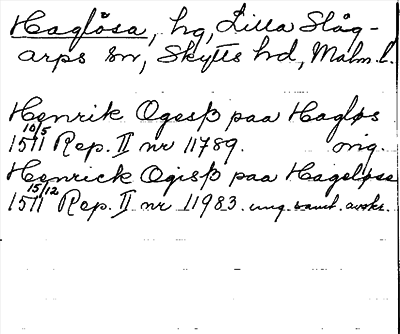 Haglösa, hg, Lilla Slåg-
arps sn, Skytts hd, Malm.l.
Henrik Ogesß paa Hagløs
10/5
1511 Rep. II nr 11789. orig.
Henrick Ogisß paa Hageløse
15/12
1511 Rep. II nr 11983. ung. samt. avskr.